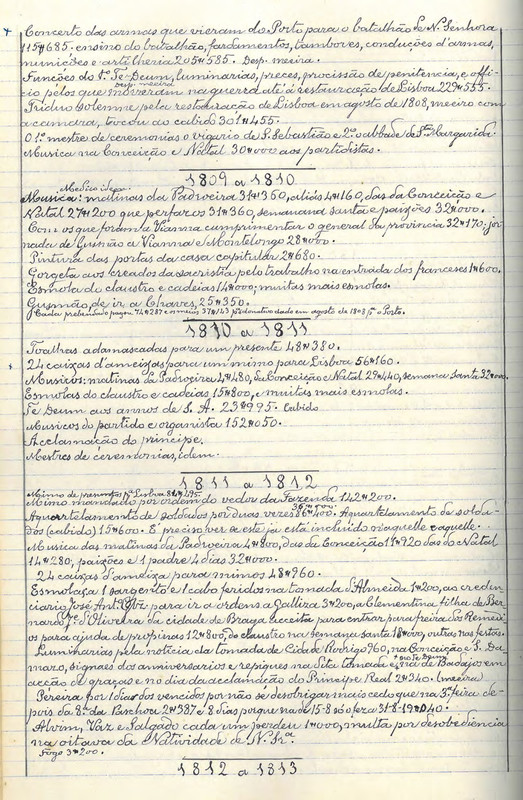 Concerto das armas que vieram do Porto para o batalhão de N. Senhora
115#685. ensino do batalhão, fardamentos, tambores, conduções d'armas,
munições e artilheria 205#585. Desp. meira.
Funcões do 1º Te-Deum, luminarias, preces, procissão de penitencia, e offi-
desp. meeira
cio pelos que morreram na guerra até à restauração de Lisboa 229#555.
Triduo solemne pela restauração de Lisboa em agosto de 1808, meeiro com
a camara, tocou ao cabido 301#455.
O 1º mestre de ceremonias o vigario de S. Sebastião e 2º o abbade de Stª Margarida.
Musica na Conceição e Natal 30#000 aos partidistas.
1809 a 1810
Medico idem.
Musica: matinas da Padroeira 31#350, aliás 4#160, das da Conceição e
Natal 27#200 que perfaz os 31#360, semana santa e paixões 32#000.
Com os que foram a Vianna cumprimentar o general da provincia 32#170. jor-
nada de Gusmão a Vianna e Montelongo 28#000.
Pintura das portas da casa capitular 2#680.
Gorgeta aos creados da sacristia pelo trabalho na entrada dos franceses 1#600.
Esmola do claustro e cadeias 14#000; muitas mais esmolas.
Gusmão, de ir a Chaves, 25#350.
Cada prebendado pagou 74#287 e os meios 37#143 pº donativo dado em agosto de 1808 pº o Porto.
1810 a 1811
Toalhas adamascadas para um presente 48#380.
24 caixas d'ameixas para um mimo para Lisboa 56#160.
Musicos: matinas da Padroeira 4#480, da Conceição e Natal 29#440, semana santa 32#000.
Esmolas do claustro e cadeias 15#800, e muitas mais esmolas.
Te Deum aos annos de S. A. 23#995. Cabido.
Musicos do partido e organista 152#050.
Acclamação do principe.
Mestres de ceremonias, idem.
1811 a 1812
Mimo de presuntos pª Lisboa 86#295.
Mimo mandado por ordem do vedor da Fazenda 142#200.
Aquartelamento de soldados por duas vezes 86#400. Aquartelamento de solda-
dos (cabido) 15#600. É preciso ver se este já está incluido n'aquelle
Musica das matinas da Padroeira 4#800, das da Conceição 11#920 das do Natal
14#280, paixões e 1 padre 4 dias 32#000.
24 caixas d'ameixa para mimos 48#960.
Esmolas, a 1 sargento e 1 cabo feridos na tomada d'Almeida 1#200, ao creden-
ciario José Antº para ir a ordens a Galliza 3#200, a Clementina filha de Ber-
nardo d'Oliveira da cidade de Braga acceita para entrar para freira dos Remedi-
os para ajuda de propinas 12#800, do claustro na semana santa 18#000, outras nas festas.
Luminarias pela noticia da tomada de Cidade Rodrigo 960, na Conceição e S. Da-
maso, signaes dos anniversarios e repiques na dita tomada e na de Badajoz em
acção de graças e no dia da acclamação do Principe Real 2#240. (meeira)
Pereira por 1 dia dos vencidos por não se desobrigar mais cedo que na 3ª feira de-
pois da 8ª da Paschoa 2#387 e 8 dias porque na de 15-8 só o fez a 31-8-19#040.
Alvim, Vaz e Salgado cada um perdeu 1#000, multa por desobediencia
na oitava da Natividade de N. Srª.
Fogo 3#200.
1812 a 1813